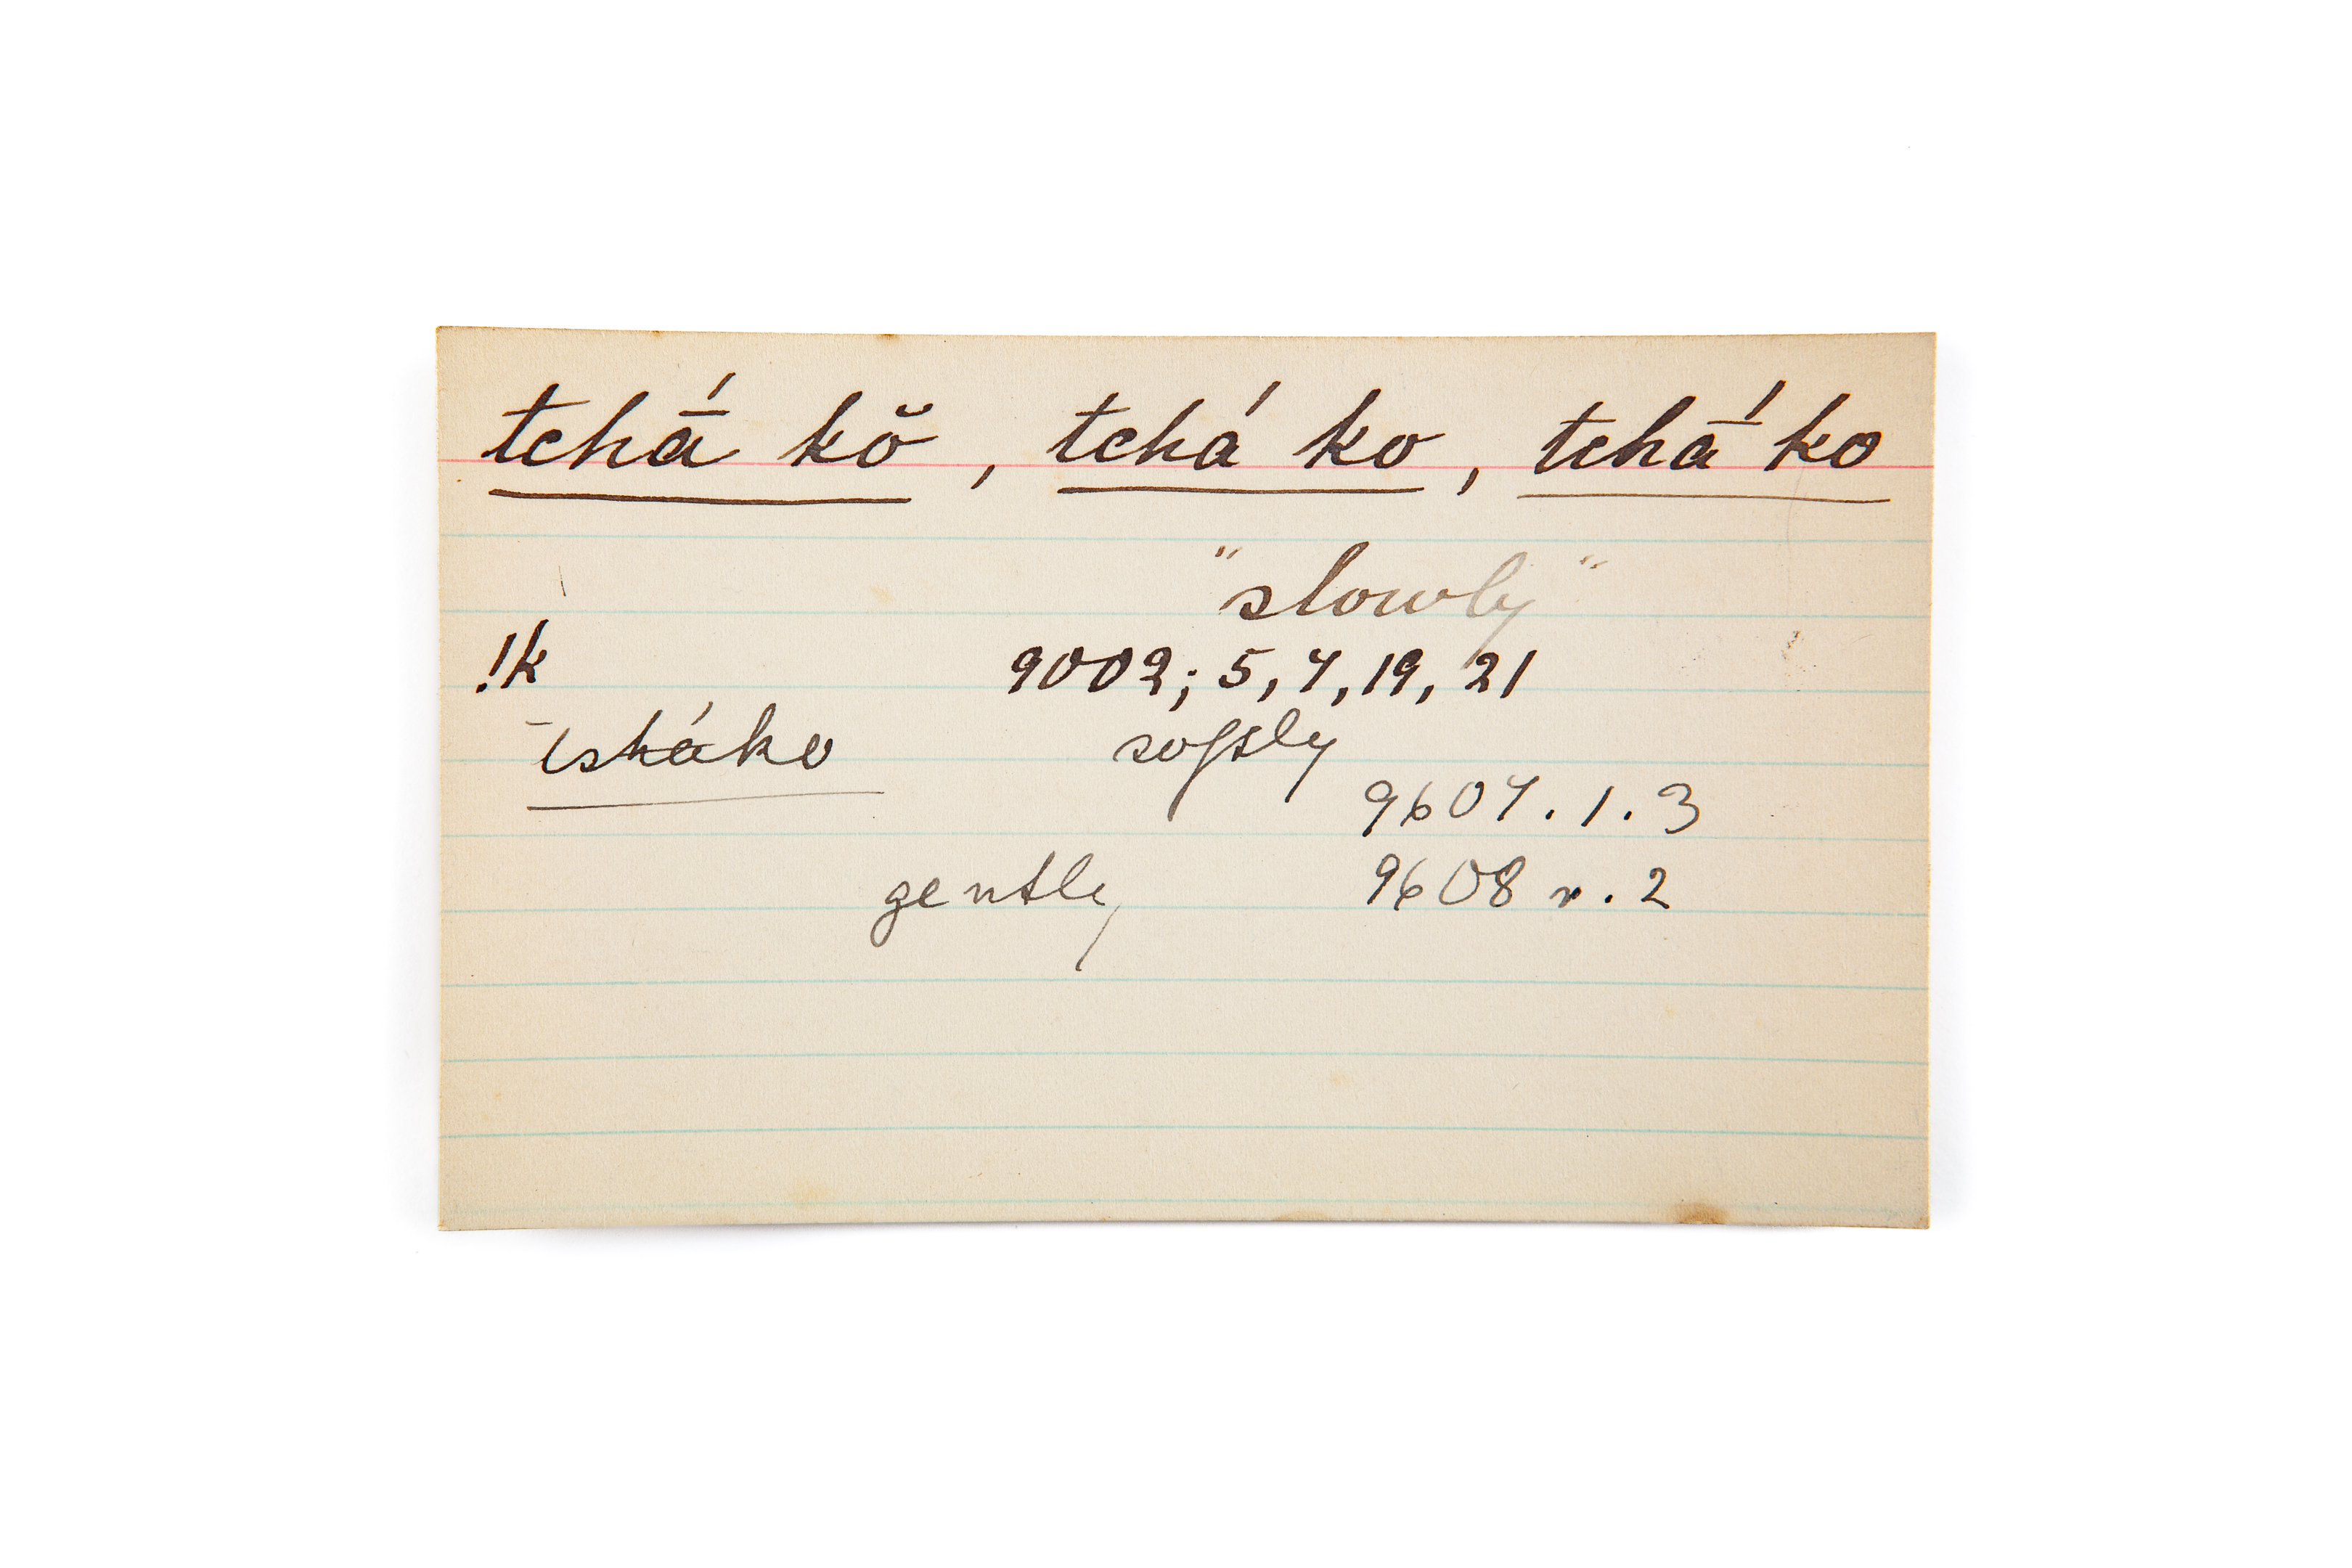 tchā́ kŏ, tchá ko, tchā́ ko
"slowly"
!k 9002; 5, 7, 19, 21
tsháko softly
9607. 1. 3
gently 9608 v. 2